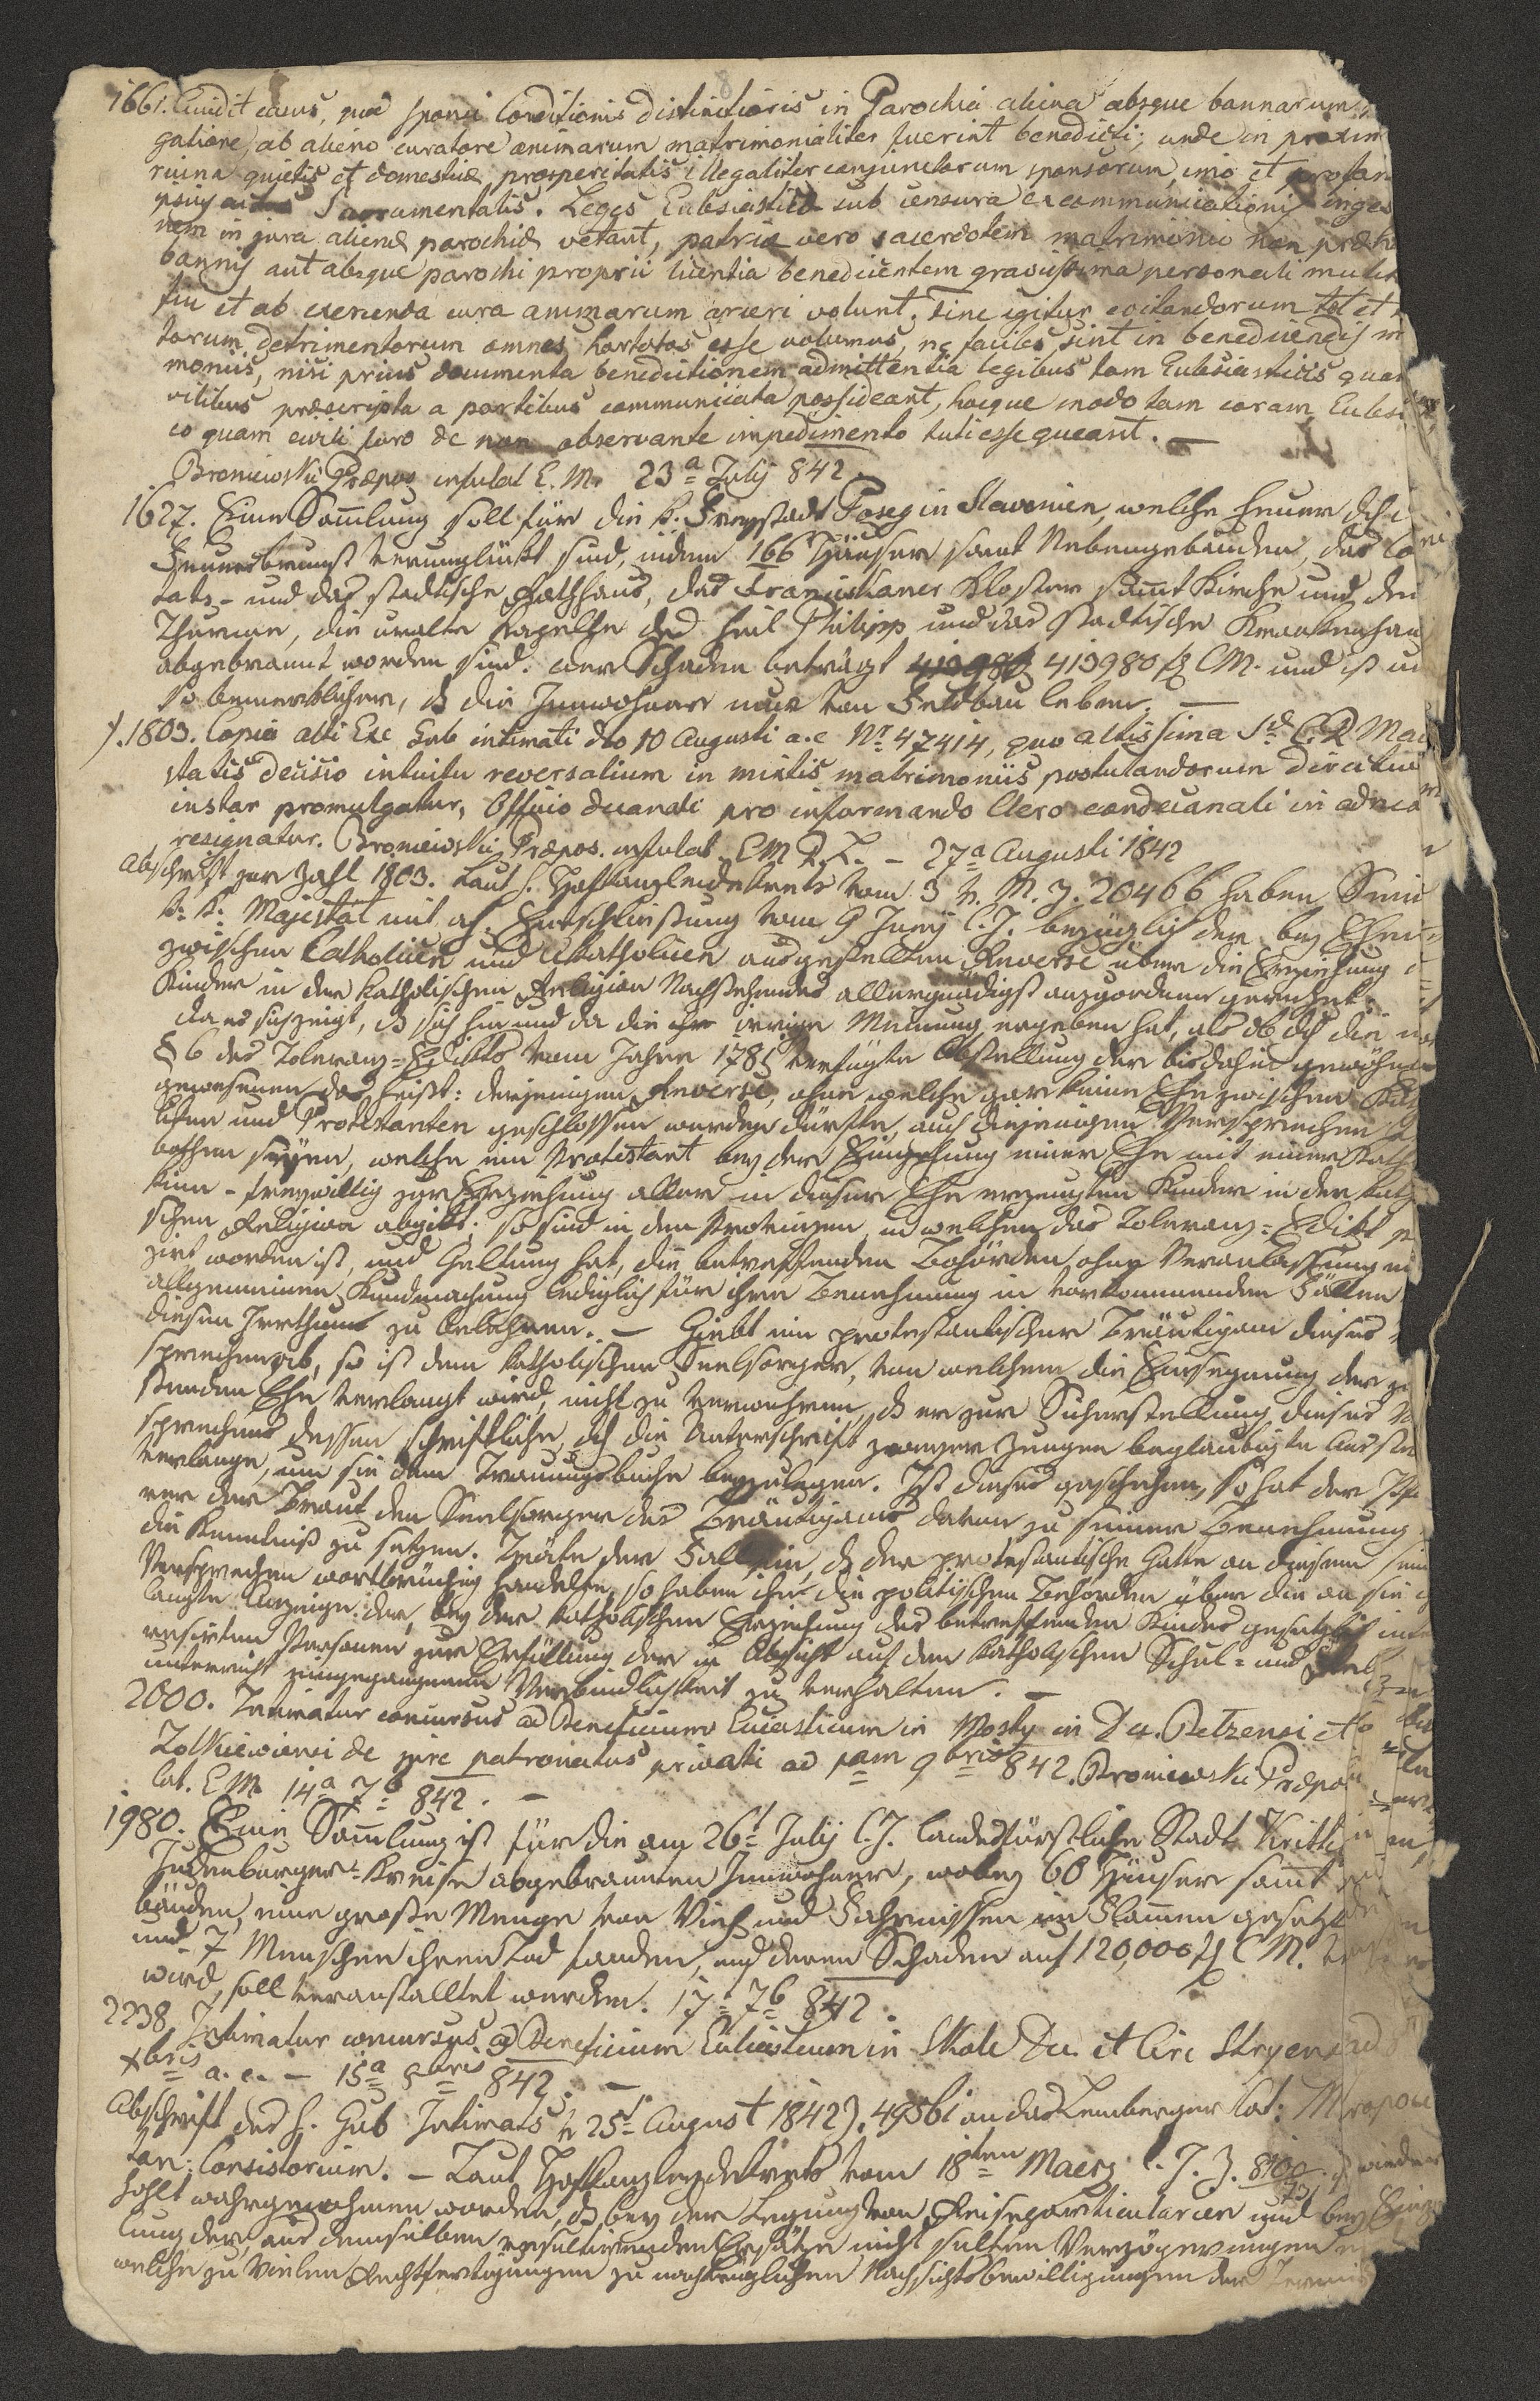 8
1661. Cuidit casus, quod sponsi Conditionis distinctioris in Parochia aliena absque bannarum
gatione, ab alieno curatore animarum matrimonialiter fuerint benedicti; unde in proxim
ruina quietis et domesticæ prosperitatis illegaliter conjunctorum sponsorum, imo et profan
ipsius actus Sacramentalis. Leges Eclesiasticæ sub censura excommunicationis inges
nem in jura alienæ parochiæ vetant, patriæ vero sacerdotem matrimonio non præha
bannis aut absque parochi proprii licentia benedicentem gravissima personali mulct
tiri et ab exercenda cura animarum arceri volunt. Fine igitur evitandorum tot et
torum detrimentorum omnes hortatos esse volumus, ne faciles sint in benedicendis m
moniis, nisi prius documenta benedictionem admittentia legibus tam Eclesiasticis quam
vilibus præscripta a partibus communicata possideant, hocque modo tam coram Eclesi
co quam civili foro de non observante impedimento tuti esse queant. —
Broniewski Præpos. infulat E. M. 23a July 842
1627. Eine Sammlung soll für die k. Freystadt Poseg in Slavonien, welche heuer dch
Feuersbrunst verunglückt sind, indem 166 Häuser samt Nebengebäuden, das Co
tats- und das städtische Rathhaus, das Franciskaner Kloster samt Kirche und drei
Thürmen, die uralte Kapelle des heil Philipp und das städtische Krankenhaus
abgebrannt worden sind. der Schaden beträgt 413980 f CM. und ist um
so bemerklicher, dß die Innwohner nur von Feldbau leben. —
1803. Copia alti Exc Gub intimati dto 10 Augusti a.c Nr 47414, quo altissima Sæ C. R Maie
statis decisio intuitu reversalium in mixtis matrimoniis postulandorum
instar promulgatur, Officio decanali pro informando Clero condecanali in adnexo
resignatur. Broniewski Præpos. infulat. EM R. L. — 27a Augusti 1842
Abschrift zur Zahl 1803. Laut h. Hofkanzleidekrets vom 3 v. M. Z. 20466 haben Seine
k: k: Majestät mit ah. Entschließung vom 9 Juny l. J. bezüglich der bey Ehen
zwischen Catholicen und Akatholicen ausgestellten Reverse über die Erziehung
Kinder in der katholischen Religion Nachstehendes allergnädigst anzuordnen geruhet:
da es sich zeigt, dß sich hie und da die irrige Meinung ergeben hat, als ob dch die
§ 6 des Toleranz-Edikts vom Jahre 1781 verfügte Abstellung der bis dahin gewöhnl
gewesenen, das heißt: derjenigen Reverse, ohne welche gar keine Ehe zwischen Kath
liken und Protestanten geschlossen werden dürfte, auch diejenigen Versprechen
bothen seyen, welche ein Protestant bey der Eingehung einer Ehe mit einer Kath
kinn - freywillig zur Erziehung aller in dieser Ehe erzeugten Kinder in der kath
schen Religion abgibt; so sind in den Provinzen, in welchen das Toleranz-Edikt
zirt worden ist, und Geltung hat, die betreffenden Behörden ohne Veranlassung
allgemeinen Kundmachung lediglich für ihre Benehmung in vorkommenden Fällen
diesen Irrthums zu belehren. — Giebt ein protestantischer Bräutigam dieses
sprechen ab, so ist dem katholischen Seelsorger, von welchem die Einsegnung der
stenden Ehe verlangt wird, nicht zu verwehren, dß er zur Sicherstellung dieses
sprechens dessen schriftliche dch die Unterschrift zweyer Zeugen beglaubigte Ausstel
verlange, um sie dem Trauungsbuche beyzulegen. Ist dieses geschehen, so hat der Pfa
rer der Braut den Seelsorger des Bräutigams davon zu seiner Benehmung
die Kenntniß zu setzen. Träte der Fall ein, dß der protestantische Gatte an diesem sein
Versprechen wortbrüchig handelte, so haben ihn die politischen Behörden über die an sie
langte Anzeige der, bey der katholischen Erziehung des betreffenden Kindes gesetzlich inte
ressirten Personen zur Erfüllung der in Absicht auf den katholischen Schul- und
unterricht eingegangenen Verbindlichkeit zu verhalten. —
2000. Intimatur concursus ad Beneficium Curasticum in Mosty in Du. Belzensi
Zolkiewiensi de jure patronatus privati ad 1am 9bris 842. Broniewski Præpos
lat. E.M 14a 7b 842. —
1980. Eine Sammlung ist für die am 26t July l. J. landesfürstliche Stadt
Judenburger-Kreise abgebrannten Innwohner, wobey 60 Häuser samt
bäuden, eine große Menge von Vieh und Fahrnissen in Flammen gesetzt
und 7 Menschen ihren Tod fanden, und deren Schaden auf 120,000 f C M.
wird, soll veranstalltet werden. 17a 7b 842.
2238 Intimatur concursus ad Beneficium Eclesiasticum in Skole Du. et Circ Stryensi ad
Xbris a. c. — 15a 9bris 842. —
Abschrift des h. Gub Intimats v 25t August 1842 Z. 49561 an das Lemberger lat: Metropoli
tan: Consistorium. — Laut Hofkanzleydekrets vom 18ten Maerz l. J. Z. ist wieder
hohlt wahrgenohmen worden, dß bey der Legung von Reiseparticularien und bey
lung der, aus denselben resultirenden Ersätze nicht selten Verzögerungen
welche zu vielen Rechtfertigungen zu nachträglichen Nachsichtsbewilligungen der